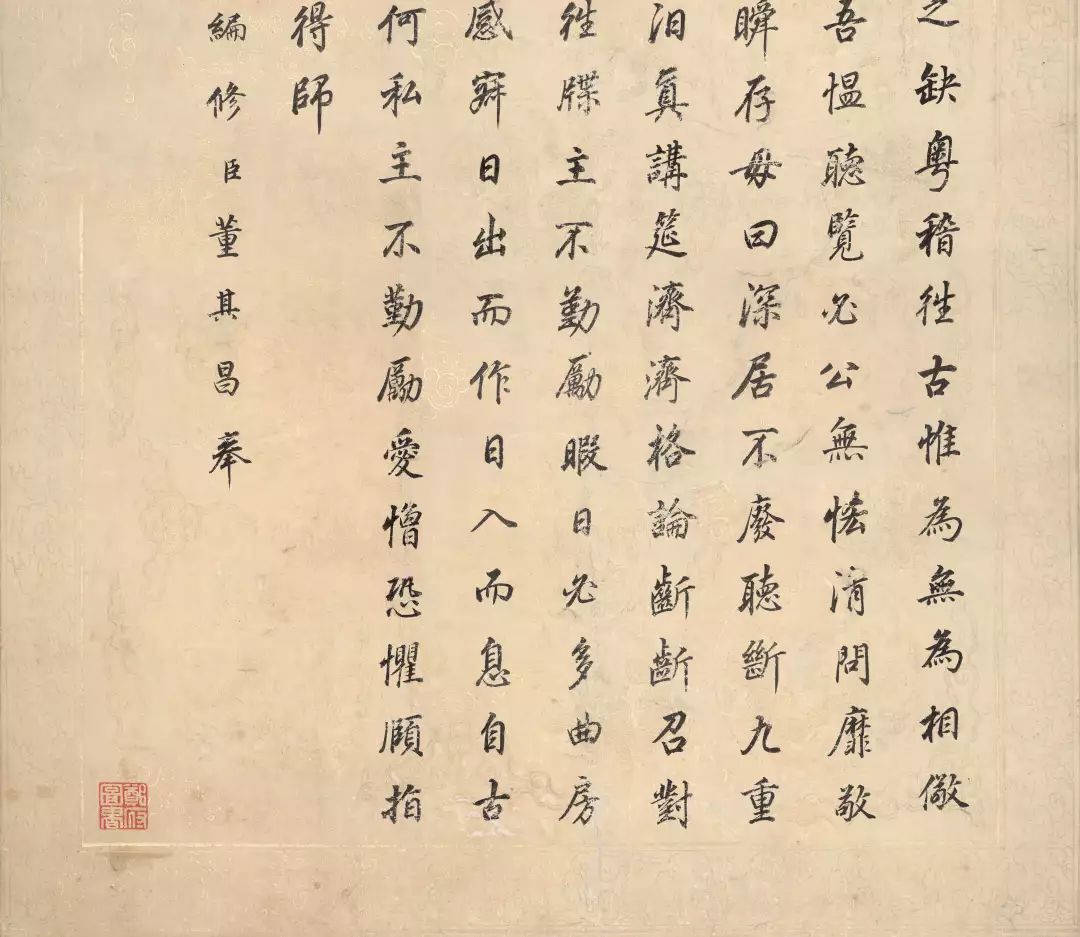 之缺粤稽徃古惟為無為相儆
吾愠聽覽必公無清問靡敬
瞬存毋曰深居不廢聽斷九重
汨真講筵濟濟格論齗齗召對
徃牒主不勤勵暇日必多曲房
感日出而作日入而息自古
何私主不勤勵愛憎恐懼頋指
得師
編修臣董其昌奉